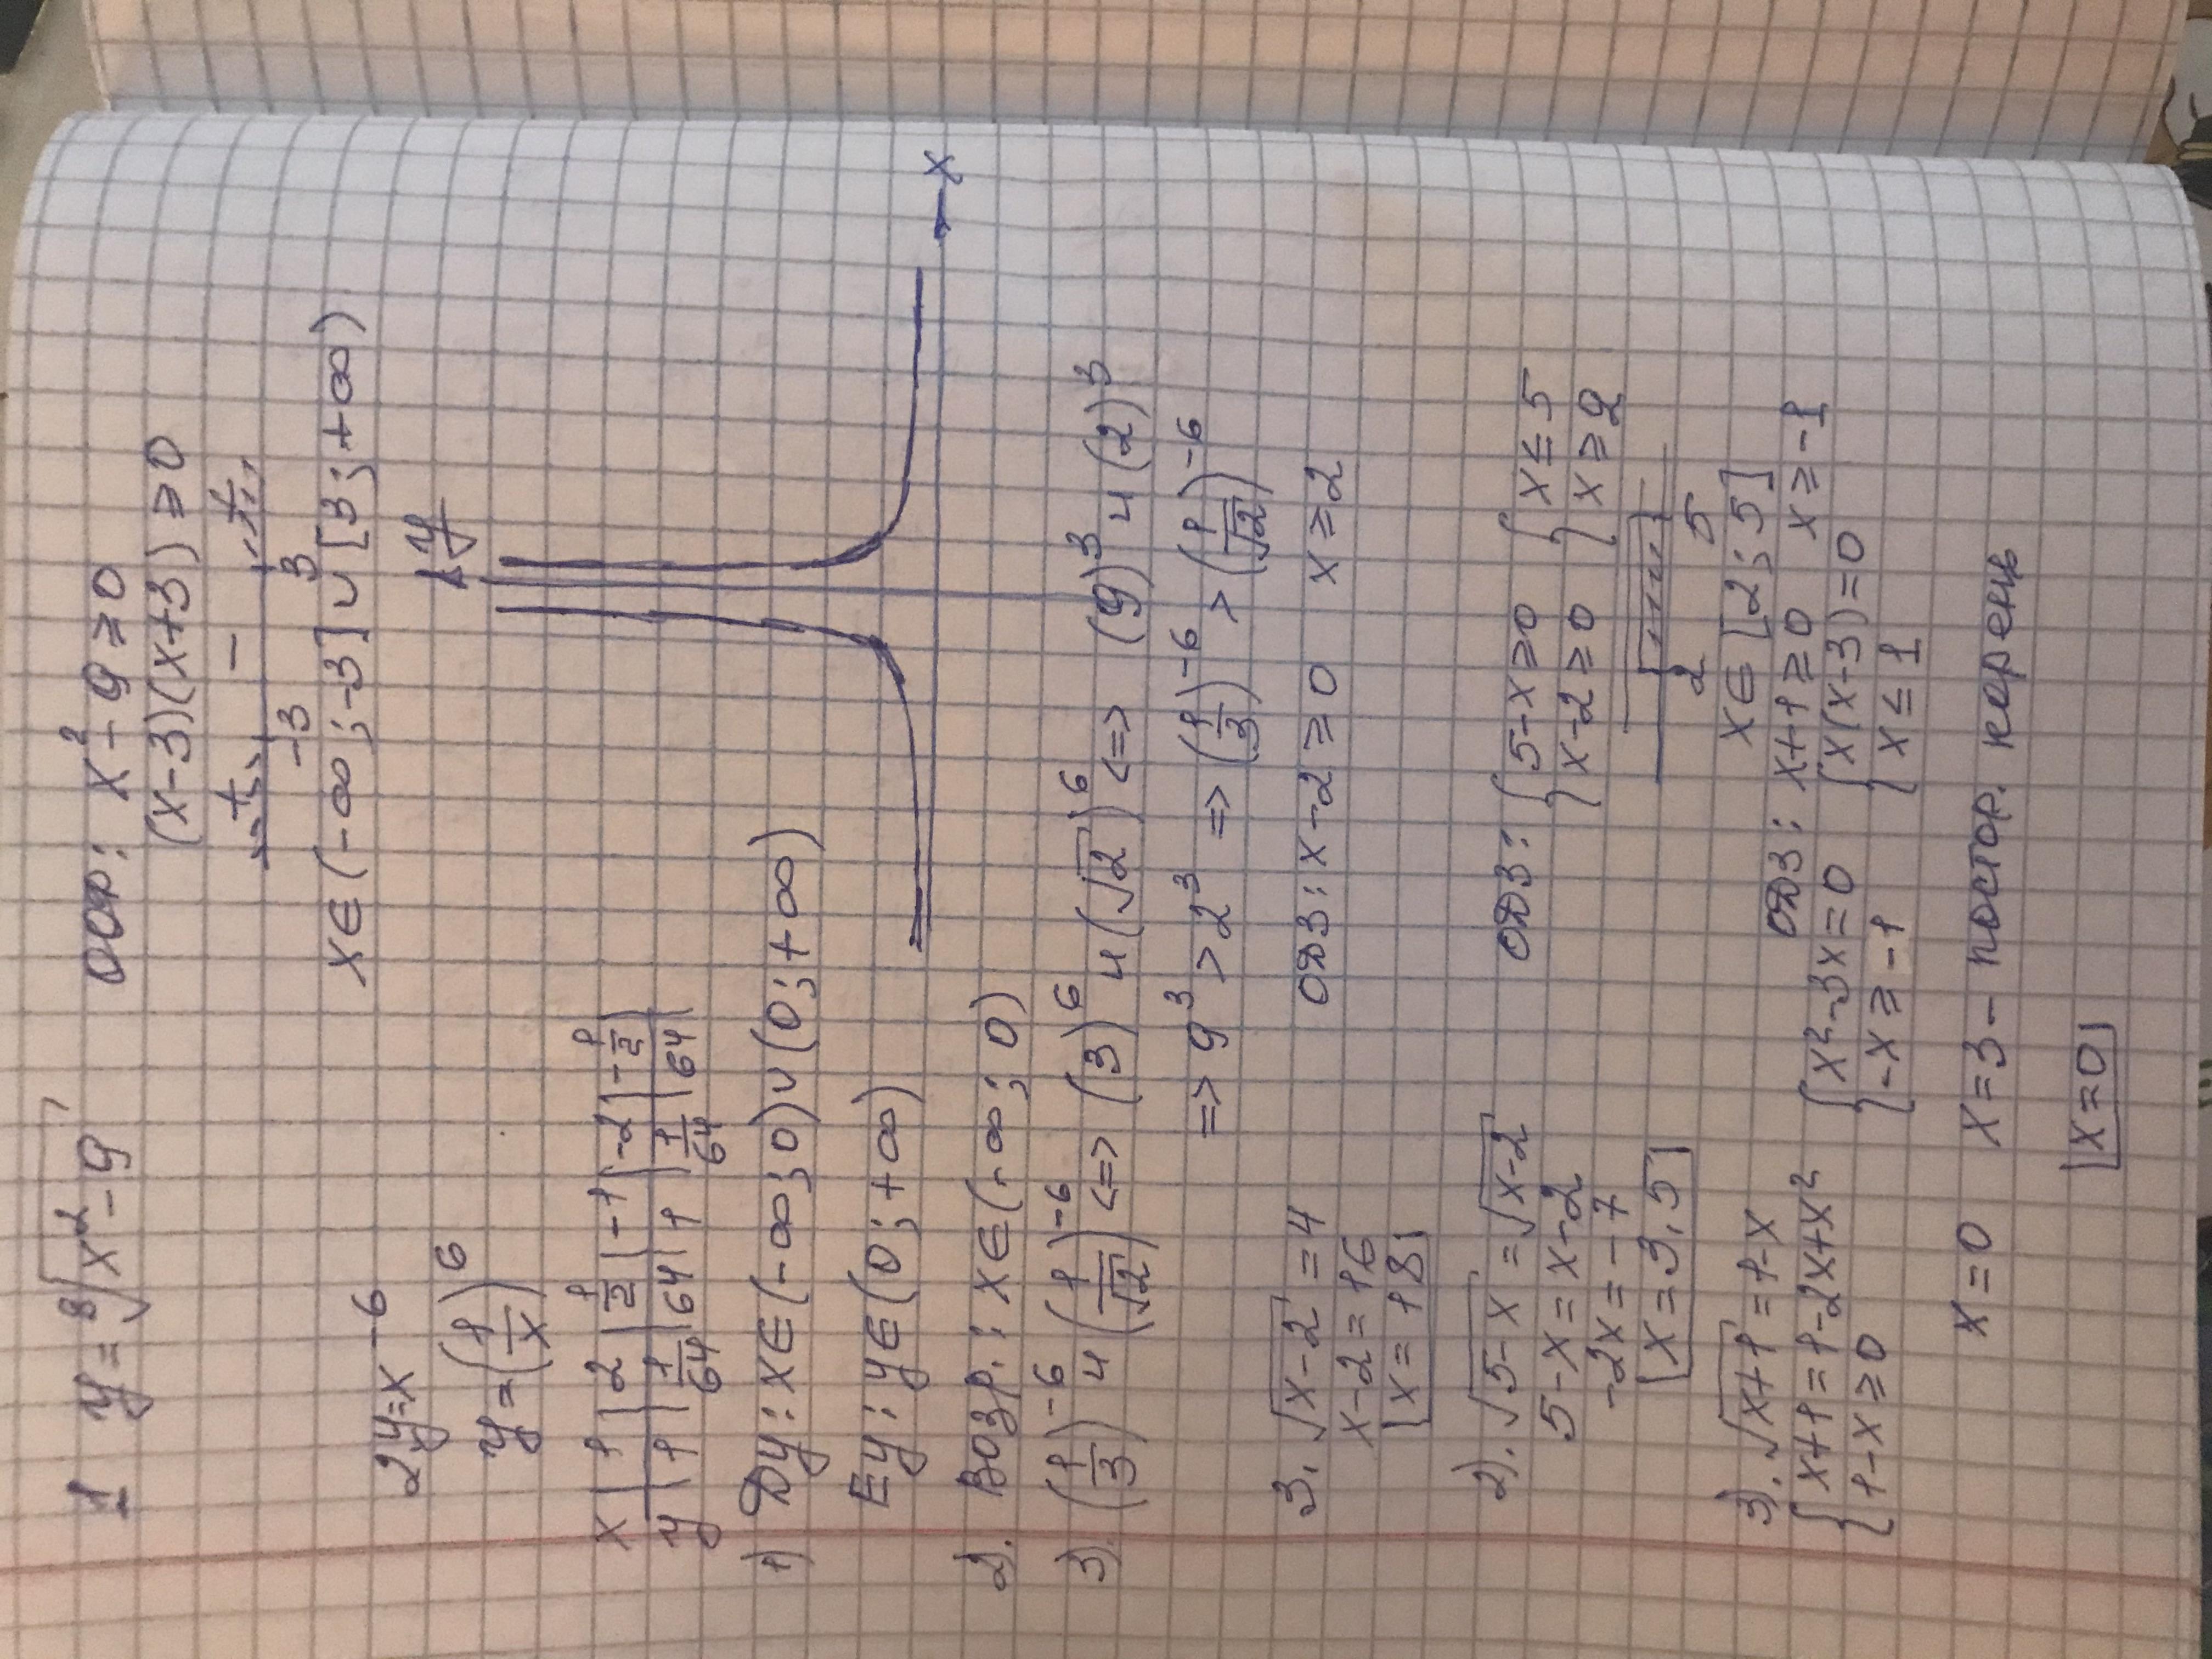 1 y = ⁸√(x²-9) ООФ: x²-9 ⩾ 0
(x-3)(x+3) ⩾ 0
+ - +
-3 3
x ∈ (-∞; -3] ∪ [3; +∞)
2 y = x⁻⁶
y = (1/x)⁶
y
x
x | 1 | 2 | 1/2 | -1 | -2 | -1/2 |
y | 1 | 1/64 | 64 | 1 | 1/64 | 64 |
1) Dy: x ∈ (-∞; 0) ∪ (0; +∞)
Ey: y ∈ (0; +∞)
2). Возр.: x ∈ (-∞; 0)
3). (1/3)⁻⁶ и (1/√2)⁻⁶ <=> (3)⁶ и (√2)⁶ <=> (9)³ и (2)³
=> 9³ > 2³ => (1/3)⁻⁶ > (1/√2)⁻⁶
3. √(x-2) = 4 ОДЗ: x-2 ⩾ 0 x ⩾ 2
x-2 = 16
x = 18
2). √(5-x) = √(x-2) ОДЗ: { 5-x ⩾ 0 { x ⩽ 5
5-x = x-2 x-2 ⩾ 0 x ⩾ 2
-2x = -7
2 5
x = 3,5
x ∈ [2; 5]
3). √(x+1) = 1-x ОДЗ: x+1 ⩾ 0 x ⩾ -1
{ x+1 = 1-2x+x² { x²-3x = 0 { x(x-3) = 0
1-x ⩾ 0 -x ⩾ -1 x ⩽ 1
x = 0 x = 3 - постор. корень
x = 0